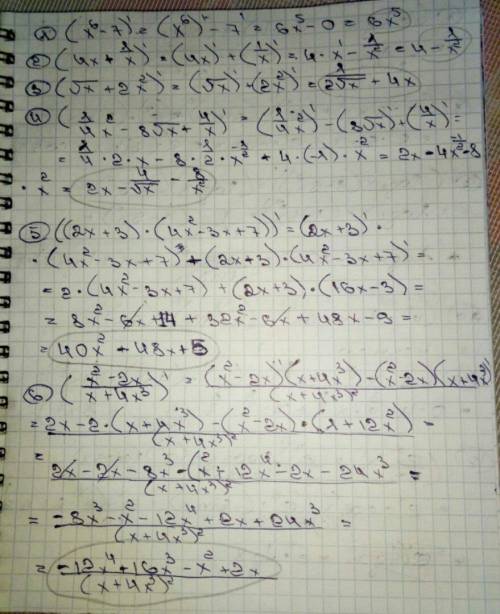 1) (x⁶-7)' = (x⁶)' - 7' = 6x⁵ - 0 = 6x⁵
2) (4x + 1/x)' = (4x)' + (1/x)' = 4·x' - 1/x² = 4 - 1/x²
3) (√x + 2x²)' = (√x)' + (2x²)' = 1/(2√x) + 4x
4) (1/4 x² - 8√x + 4/x)' = (1/4 x²)' - (8√x)' + (4/x)' =
5) ((2x+3)·(4x²-3x+7))' = (2x+3)' ·
·(4x²-3x+7) + (2x+3)·(4x²-3x+7)' =
= 2·(4x²-3x+7) + (2x+3)·(16x-3) =
= 8x² - 6x + 14 + 32x² - 6x + 48x - 9 =
6) ((x²-2x)/(x+4x³))' = ((x²-2x)'(x+4x³) - (x²-2x)(x+4x³)')/(x+4x³)²
= (2x-2·(x+4x³) - (x²-2x)·(1+12x²))/(x+4x³)² =
= (2x - 2x - 8x³ - (x² + 12x⁴ - 2x - 24x³))/(x+4x³)² =
= (-8x³ - x² - 12x⁴ + 2x + 24x³)/(x+4x³)² =
= (-12x⁴ + 16x³ - x² + 2x)/(x+4x³)²